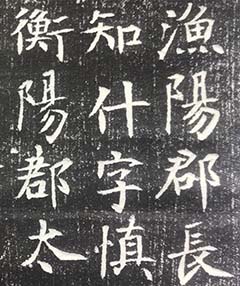 漁陽郡長
知什字慎
衡陽郡太